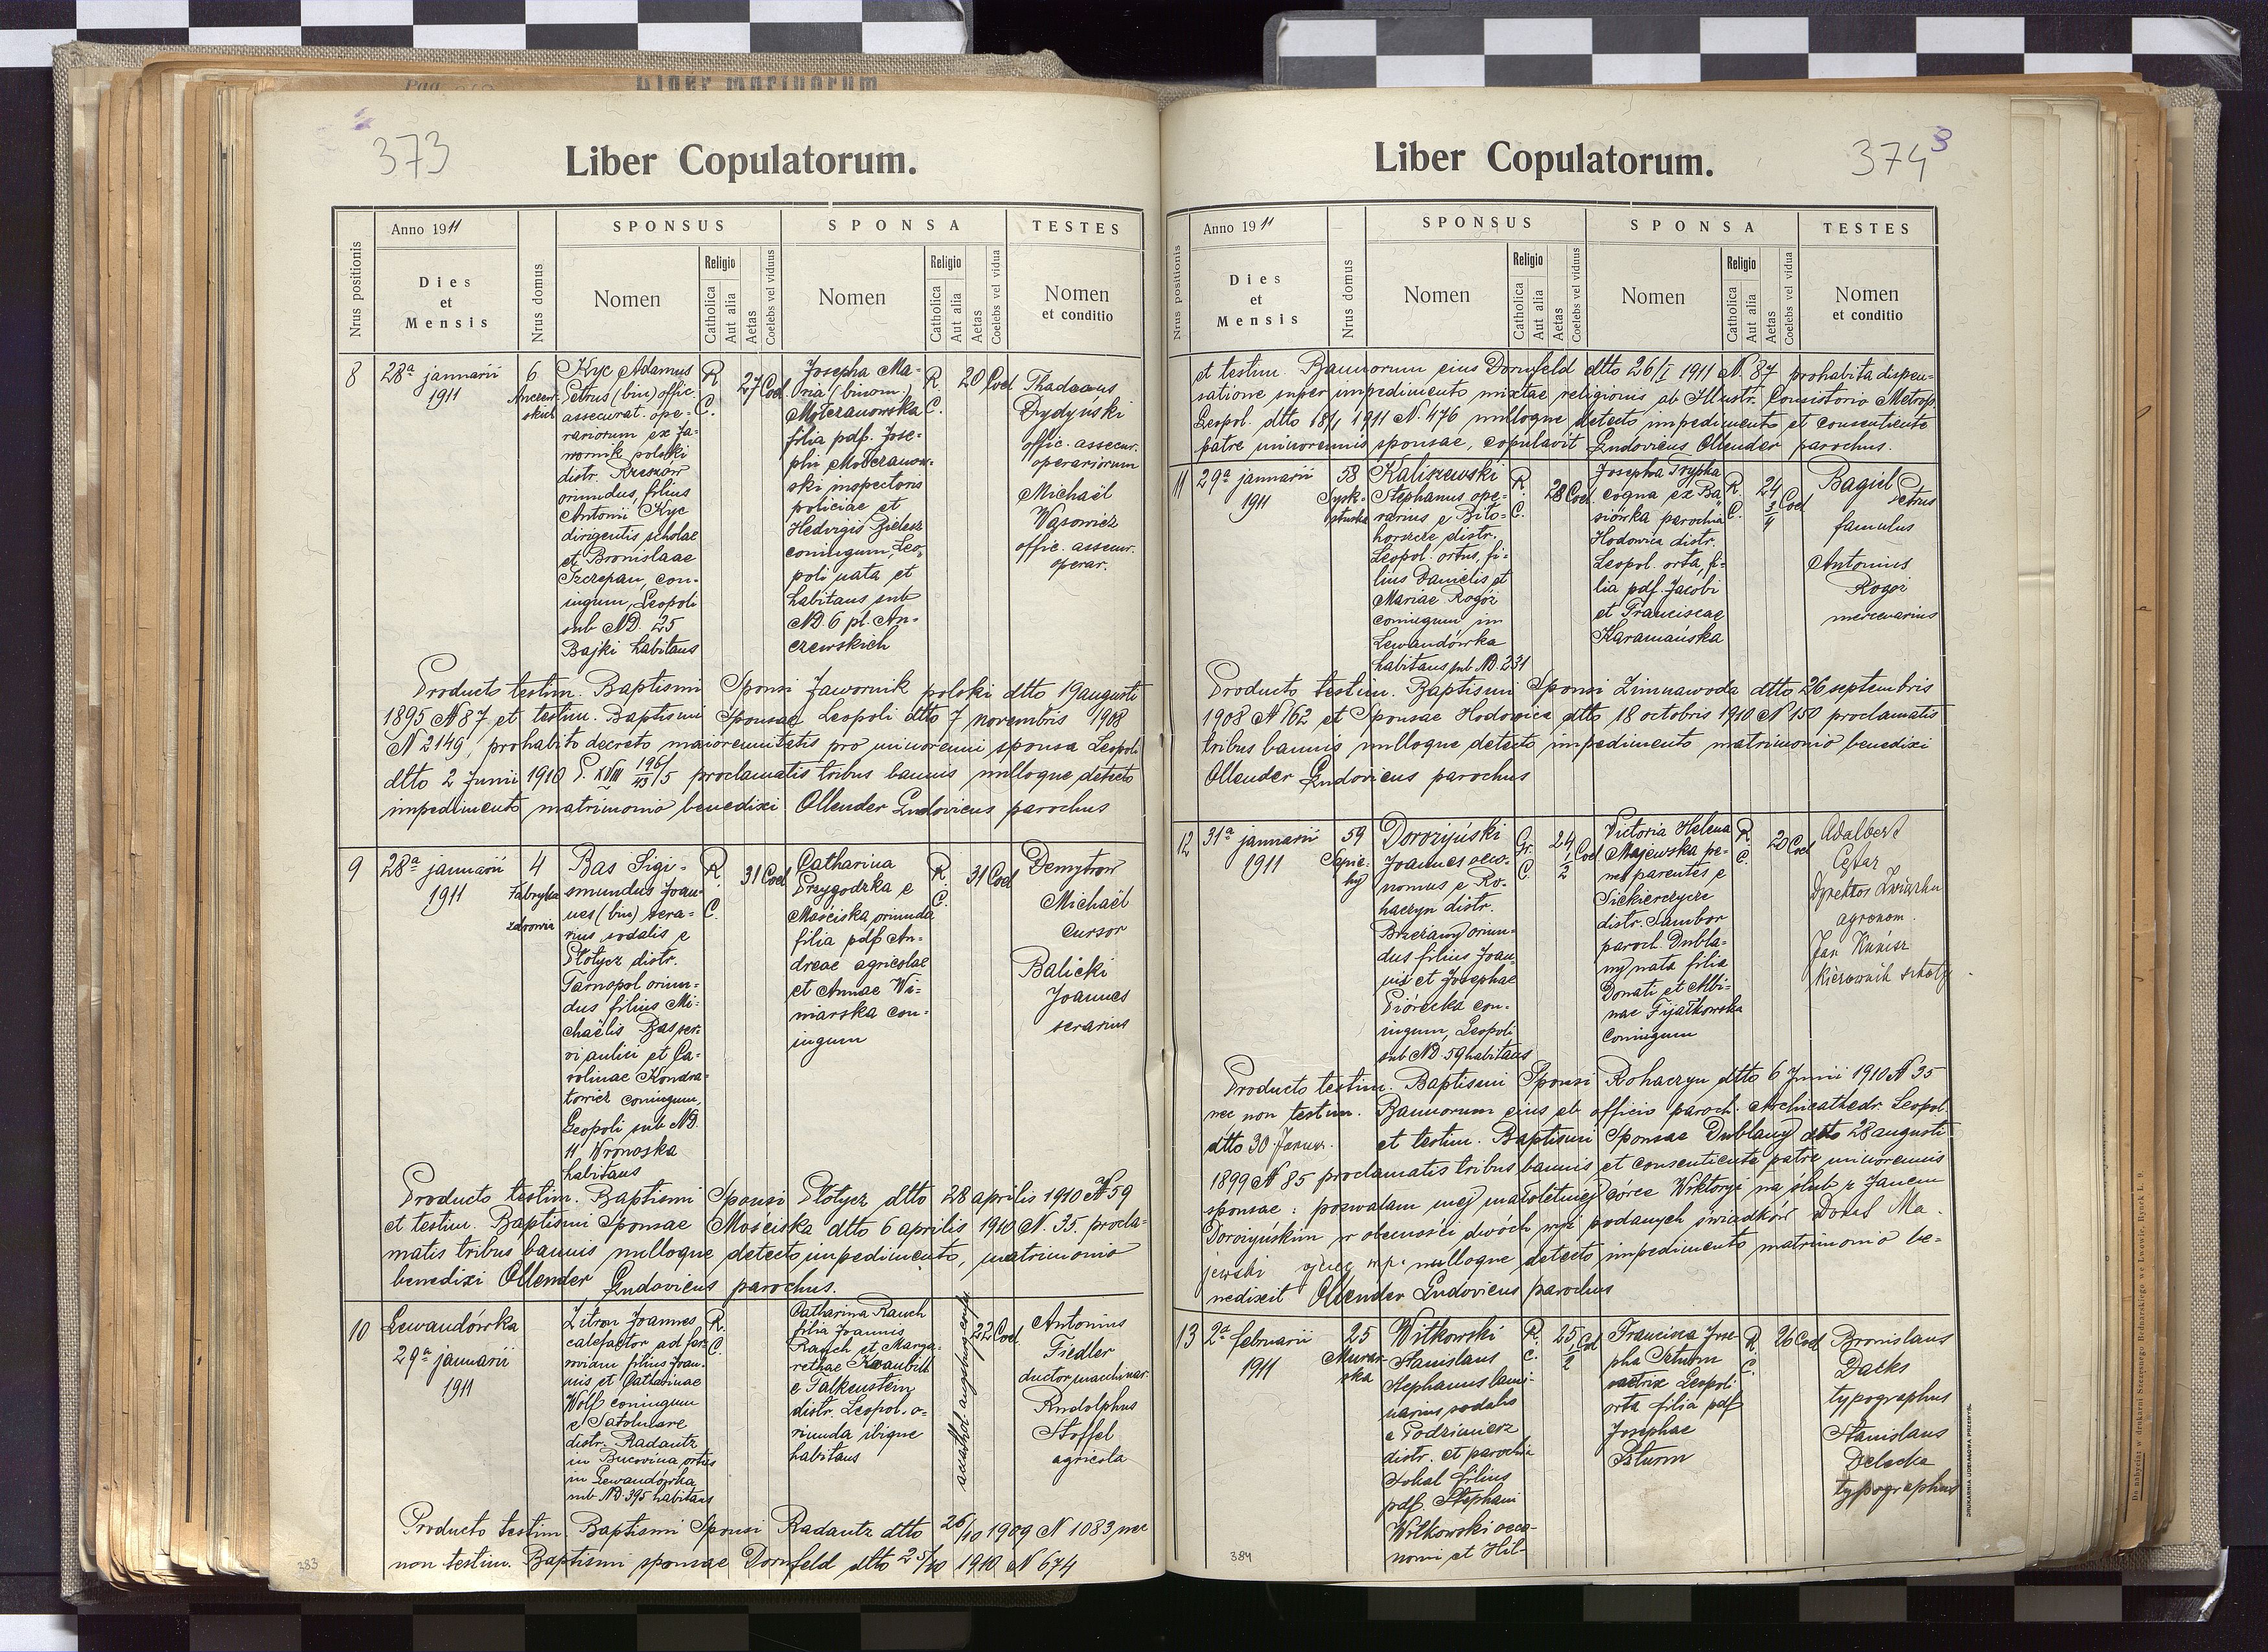 373
Liber Copulatorum.
Nrus positionis
Anno 1911
Dies
et
Mensis
Nrus domus
SPONSUS
Nomen
Religio
Catholica
Aut alia
Aetas
Coelebs vel viduus
SPONSA
Nomen
Religio
Catholica
Aut alia
Aetas
Coelebs vel vidua
TESTES
Nomen
et conditio
8
28ª januarii
1911
6
Anczew-
skich
Kyc Adamus
Petrus (bin) offic.
assecurat. ope-
rariorum ex Ja-
wornik polski
distr. Rzeszów
oriundus, filius
Antonii Kyc
dirigentis scholae
et Bronislaae
Szczepan, con-
iugum, Leopoli
sub ND. 25
Bajki habitans
R.
C.
27
Coel
Josepha Ma-
ria (binom.)
Moteranowska
filia pdf. Jose-
phi Moteranow-
ski inspectoris
policiae et
Hedvigis Zielesz
coniugum, Leo-
poli nata et
habitans sub
ND. 6 pl. An-
czewskich
R.
C.
20
Coel
Thadaeus
Drydyński
offic. assecur.
operariorum
Michaël
Wąsowicz
offic. assecur.
operar.
Producto testim. Baptismi Sponsi Jawornik polski dtto 19 augusti
1895 N 87, et testim. Baptismi Sponsae Leopoli dtto 7 novembris 1908
N 2149, prohabito decreto maiorennitatis pro minorenni sponsa Leopoli
dtto 2 Junii 1910 P. XVIII 196/43/5 proclamatis tribus bannis nulloque detecto
impedimento matrimonio benedixi Ollender Ludovicus parochus
9
28ª januarii
1911
4
Fabryka
zdrowia
Bas Sigi-
smundus Joan-
nes (bin) sera-
rius sodalis e
Płotycz distr.
Tarnopol oriun-
dus filius Mi-
chaëlis Bas ser-
vi aulici et Ca-
rolinae Kondra-
towicz coniugum,
Leopoli sub ND.
11 Wronoska
habitans
R.
C.
31
Coel
Catharina
Przygodzka e
Mościska oriunda
filia pdf. An-
dreae agricolae
et Annae Wi-
niarska con-
iugum
R.
C.
31
Coel
Demytrow
Michaël
cursor
Balicki
Joannes
serarius
Producto testim. Baptismi Sponsi Płotycz dtto 28 aprilis 1910 N 59
et testim. Baptismi Sponsae Mościska dtto 6 aprilis 1910 N. 35. procla-
matis tribus bannis nulloque detecto impedimento, matrimonio
benedixi Ollender Ludovicus parochus.
10
Lewandówka
29ª januarii
1911
Zitron Joannes
calefactor ad fer-
roviam filius Joan-
nis et Catharinae
Wolf coniugum
e Satolmare
distr. Radautz
in Bucovina ortus
in Lewandówka
sub ND. 395 habitans
R.
C.
Catharina Rauch
filia Joannis
Rauch et Marga-
rethae
e Falkenstein
distr. Leopol. o-
riunda ibique
habitans
acathol. augsburg. confes.
22
Coel.
Antonius
Fiedler
ductor machinar.
Rudolphus
Stoffel
agricola
Producto testim. Baptismi Sponsi Radautz dtto 26/10 1909 N 1083 nec
non testim. Baptismi sponsae Dornfeld dtto 25/10 1910 N 674
283
374
3
Liber Copulatorum.
Nrus positionis
Anno 1911
Dies
et
Mensis
Nrus domus
SPONSUS
Nomen
Religio
Catholica
Aut alia
Aetas
Coelebs vel viduus
SPONSA
Nomen
Religio
Catholica
Aut alia
Aetas
Coelebs vel vidua
TESTES
Nomen
et conditio
et testim. Bannorum eius Dornfeld dtto 26/I 1911 N. 87 prohabita dispen-
satione super impedimento mixtae religionis ab Illustr. Consistorio Metrop.
Leopol. dtto 18/1 1911 N. 476 nulloque detecto impedimento et consentiente
patre minorennis sponsae, copulavit Ludovicus Ollender parochus.
11
29ª januarii
1911
58
Sysk-
Kaliszewski
Stephanus ope-
rarius e Biło-
horszcze distr.
Leopol. ortus, fi-
lius Danielis et
Mariae Rogóż
coniugum in
Lewandówka
habitans sub ND. 231
R.
C.
28
Coel.
Josepha Trypka
cogna ex Ba-
siówka parochia
Hodowica distr.
Leopol. orta, fi-
lia pdf. Jacobi
et Franciscae
Karamańska
R.
C.
24 3/4
Coel
Bagiel
Petrus
famulus
Antonius
Rogóż
mercenarius
Producto testim. Baptismi Sponsi Zimnawoda dtto 26 septembris
1908 N 162 et Sponsae Hodowica dtto 18 octobris 1910 N 150 proclamatis
tribus bannis nulloque detecto impedimento matrimonio benedixi
Ollender Ludovicus parochus
12
31ª januarii
1911
59
Sapie-
hy
Dorożyński
Joannes oeco-
nomus e Ro-
haczyn distr.
Brzeżany oriun-
dus filius Joan-
nis et Josephae
Piórecka con-
iugum, Leopoli
sub ND 59 habitans
Gr.
C.
24 1/2
Coel
Victoria Helena
Majewska pe-
nes parentes e
Siekierczyce
distr. Sambor
paroch. Dubla-
ny nata filia
Donati et Albi-
nae Fijałkowska
coniugum
R.
C.
20
Coel
Adalbert
Cytar
Dyrektor Związku
agronom.
Jan Kunisz
kierownik szkoły
Producto testim. Baptismi Sponsi Rohaczyn dtto 6 Junii 1910 N 35
nec non testim. Bannorum eius ab officio paroch. Archicathedr. Leopol.
dtto 30. Januar. et testim. Baptismi Sponsae Dublany dtto 28 augusti
1899 N 85 proclamatis tribus bannis et consentiente patre minorennis
sponsae: pozwalam mej małoletniej córce Wiktoryi na ślub z Janem
Dorożyńskim w obecności dwóch wyż podanych świadków Donat Ma-
jewski ojciec mp. nulloque detecto impedimento matrimonio be-
nedixit Ollender Ludovicus parochus
13
2ª februarii
1911
25
Murar-
ska
Witkowski
Stanislaus
Stephanus lani-
narius sodalis
e Podzimierz
distr. et parochia
Sokal filius
pdf. Stephani
Witkowski oeco-
nomi et Hil-
R.
C.
25 1/2
Coel
Francisca Jose-
pha Szturm
sartrix Leopoli
orta filia pdf
Josephae
Szturm
R.
C.
26
Coel
Bronislaus
Dasks
typographus
Stanislaus
Delecka
typographus
384
DRUKARNIA UDZIAŁOWA PRZEMYŚL.
Do nabycia w drukarni Szczęsnego Bednarskiego we Lwowie, Rynek L. 9